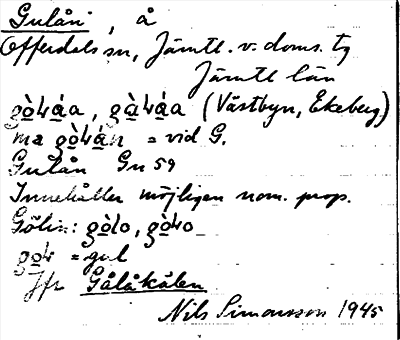 Gulån, å
Offerdals sn, Jämtl. v. doms. tg
Jämtl län
gò̱ɬá̱a, gà̱ɬá̱a (Västbyn, Ekeberg)
ma gò̱ɬá̱n = vid G.
Gulån Gn 59
Innehåller möjligen nom. prop.
Gölin: gò̱lo, gò̱ɬo
go̱ɬ = gul
Jfr Gålåkälen
Nils Simonsson 1945